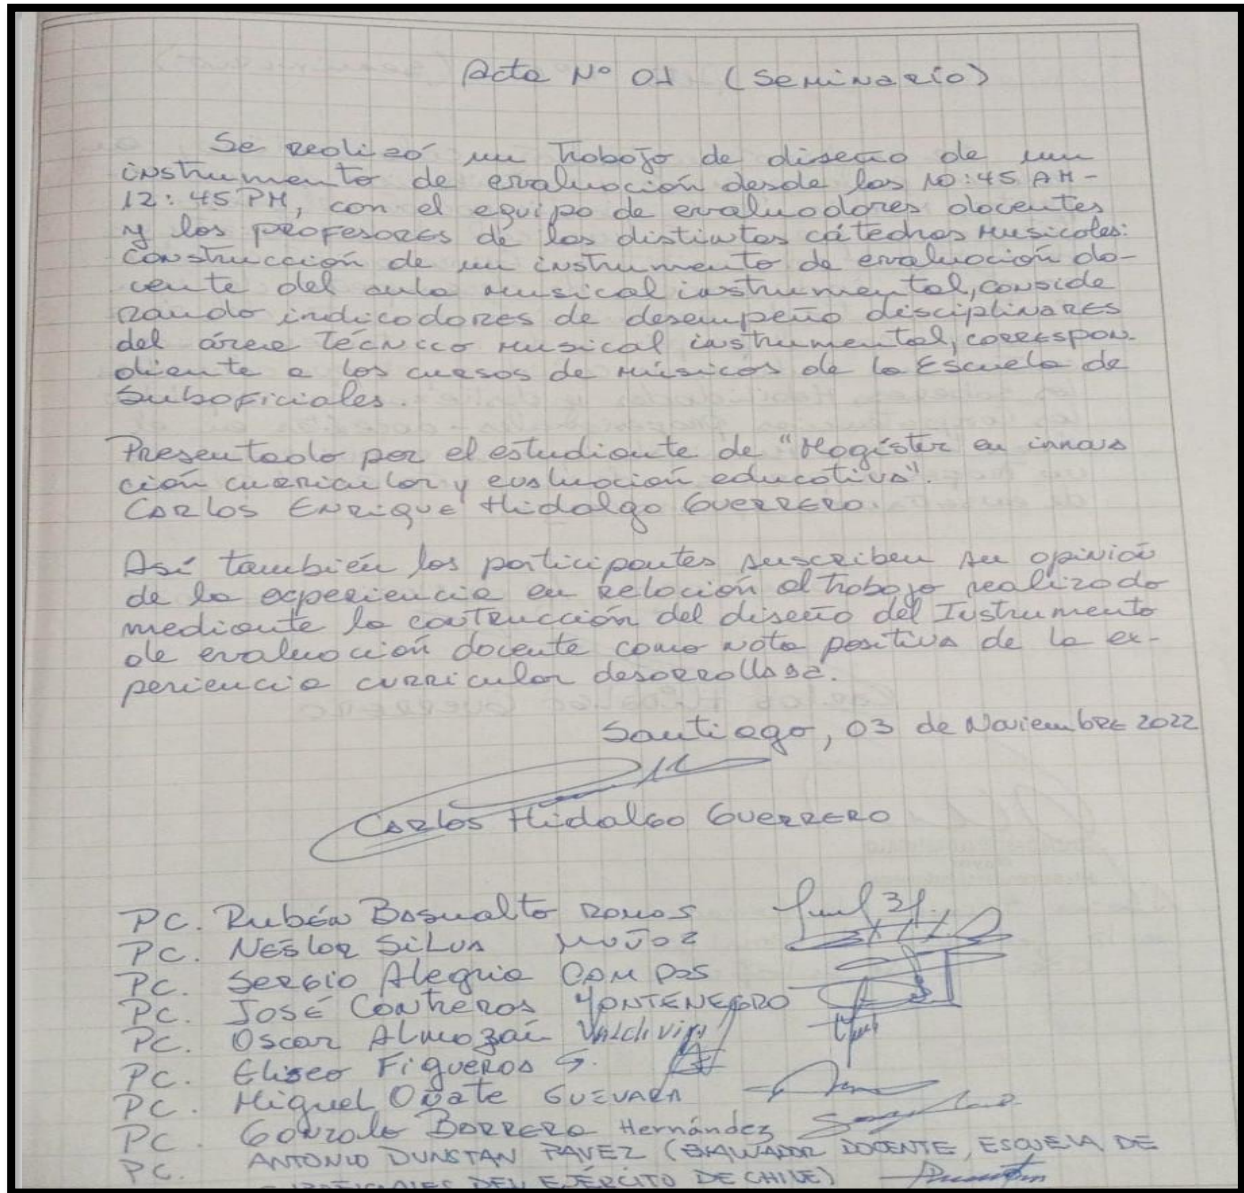 Acta Nº 01 (Seminario)
Se realizó un trabajo de diseño de un
instrumento de evaluación desde las 10:45 AM-
12:45 PM, con el equipo de evaluadores docentes
y los profesores de las distintas cátedras musicales:
construcción de un instrumento de evaluación do-
cente del aula musical instrumental, conside
rando indicadores de desempeño disciplinares
del área técnico musical instrumental, correspon-
diente a los cursos de músicos de la Escuela de
Suboficiales.
Presentado por el estudiante de "Magíster en innova
ción curricular y evaluación educativa".
Carlos Enrique Hidalgo Guerrero.
Así también los participantes suscriben su opinión
de la experiencia en relación al trabajo realizado
mediante la contrucción del diseño del Instrumento
de evaluación docente como nota positiva de la ex-
periencia curricular desarrollada.
Santiago, 03 de Noviembre 2022
Carlos Hidalgo Guerrero
PC. Rubén Basualto Ramos
PC. Néstor Silva Muñoz
PC. Sergio Alegria Campos
PC. José Contreras Montenegro
PC. Oscar Almazai Valdivia
PC. Eliseo Figueroa S.
PC. Miguel Oñate Guevara
PC. Gonzalo Borrero Hernández
PC. ANTONIO DUNSTAN PAVEZ (EVALUADOR DOCENTE, ESCUELA DE
SUBOFICIALES DEL EJÉRCITO DE CHILE)